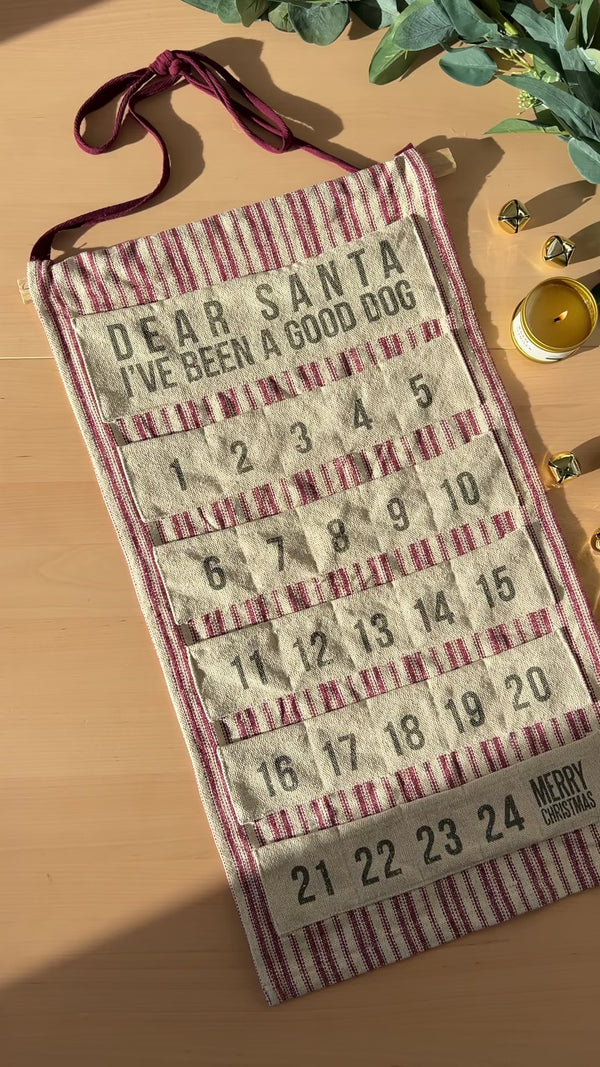 DEAR SANTA
I'VE BEEN A GOOD DOG
1 2 3 4 5
6 7 8 9 10
11 12 13 14 15
16 17 18 19 20
21 22 23 24 MERRY
CHRISTMAS